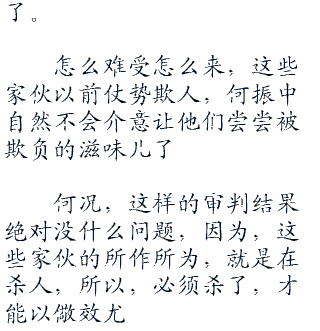 了。
怎么难受怎么来，这些
家伙以前仗势欺人，何振中
自然不会介意让他们尝尝被
欺负的滋味儿了
何况，这样的审判结果
绝对没什么问题，因为，这
些家伙的所作所为，就是在
杀人，所以，必须杀了，才
能以儆效尤